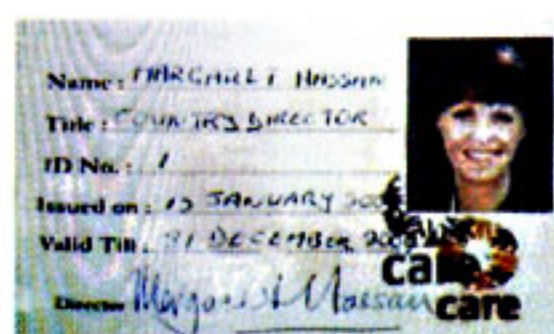 Name: MARGARET HASSAN
Title: COUNTRY DIRECTOR
ID No.: 1
Issued on: JANUARY
Valid Till: 31 DECEMBER
Director Margaret Hassan
care
care